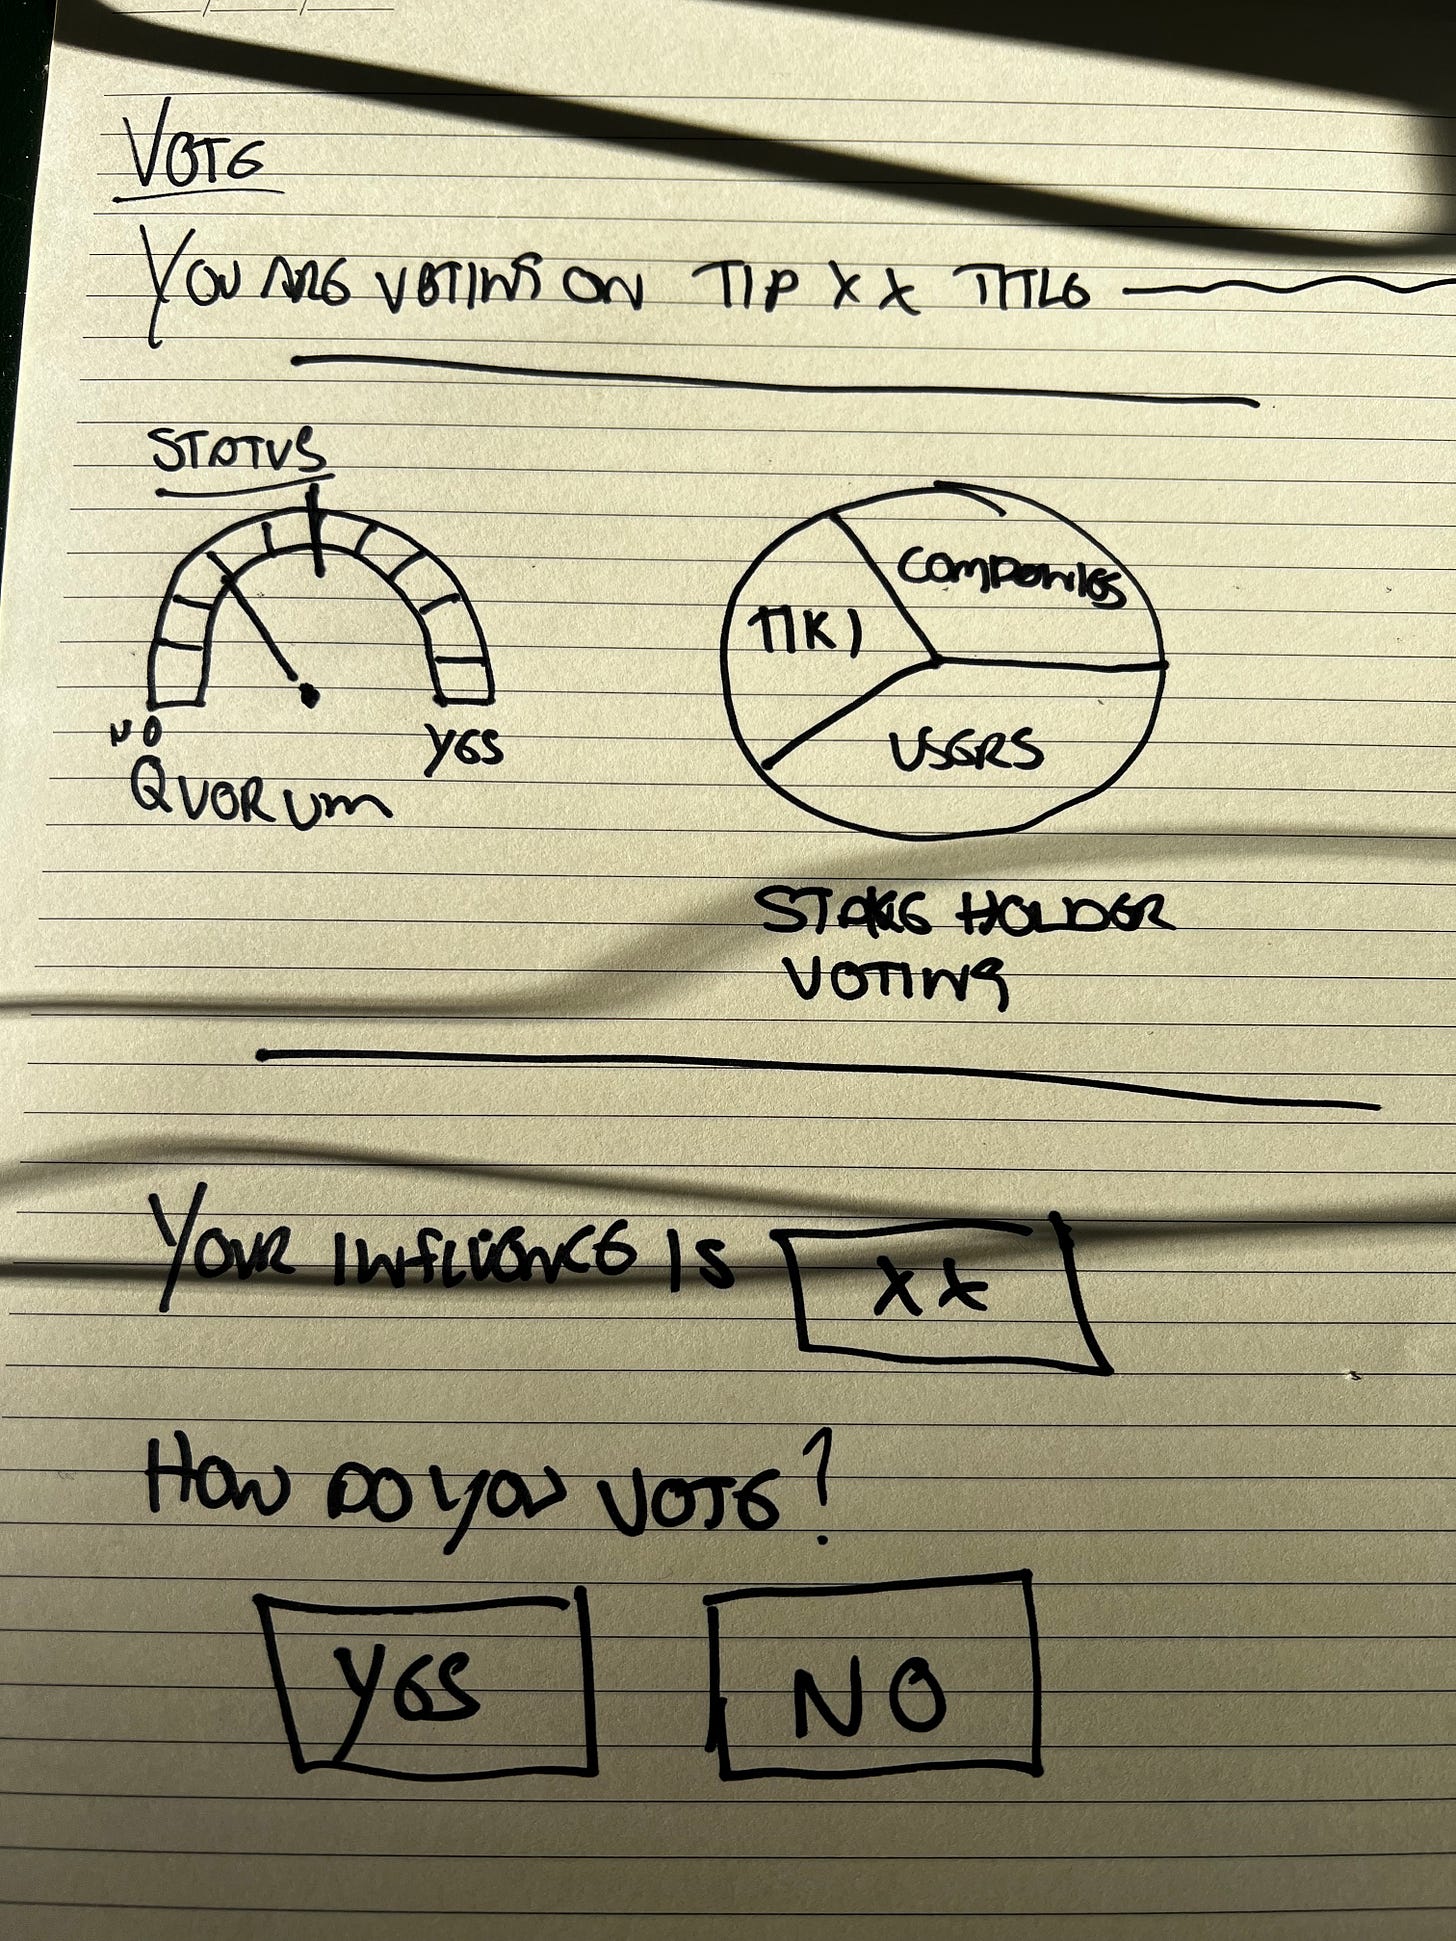 VOTE
YOU ARE VOTING ON TIP XX TITLE
STATUS
NO
YES
QUORUM
TIKI
COMPANIES
USERS
STAKE HOLDER
VOTING
YOUR INFLUENCE IS XX
HOW DO YOU VOTE?
YES
NO